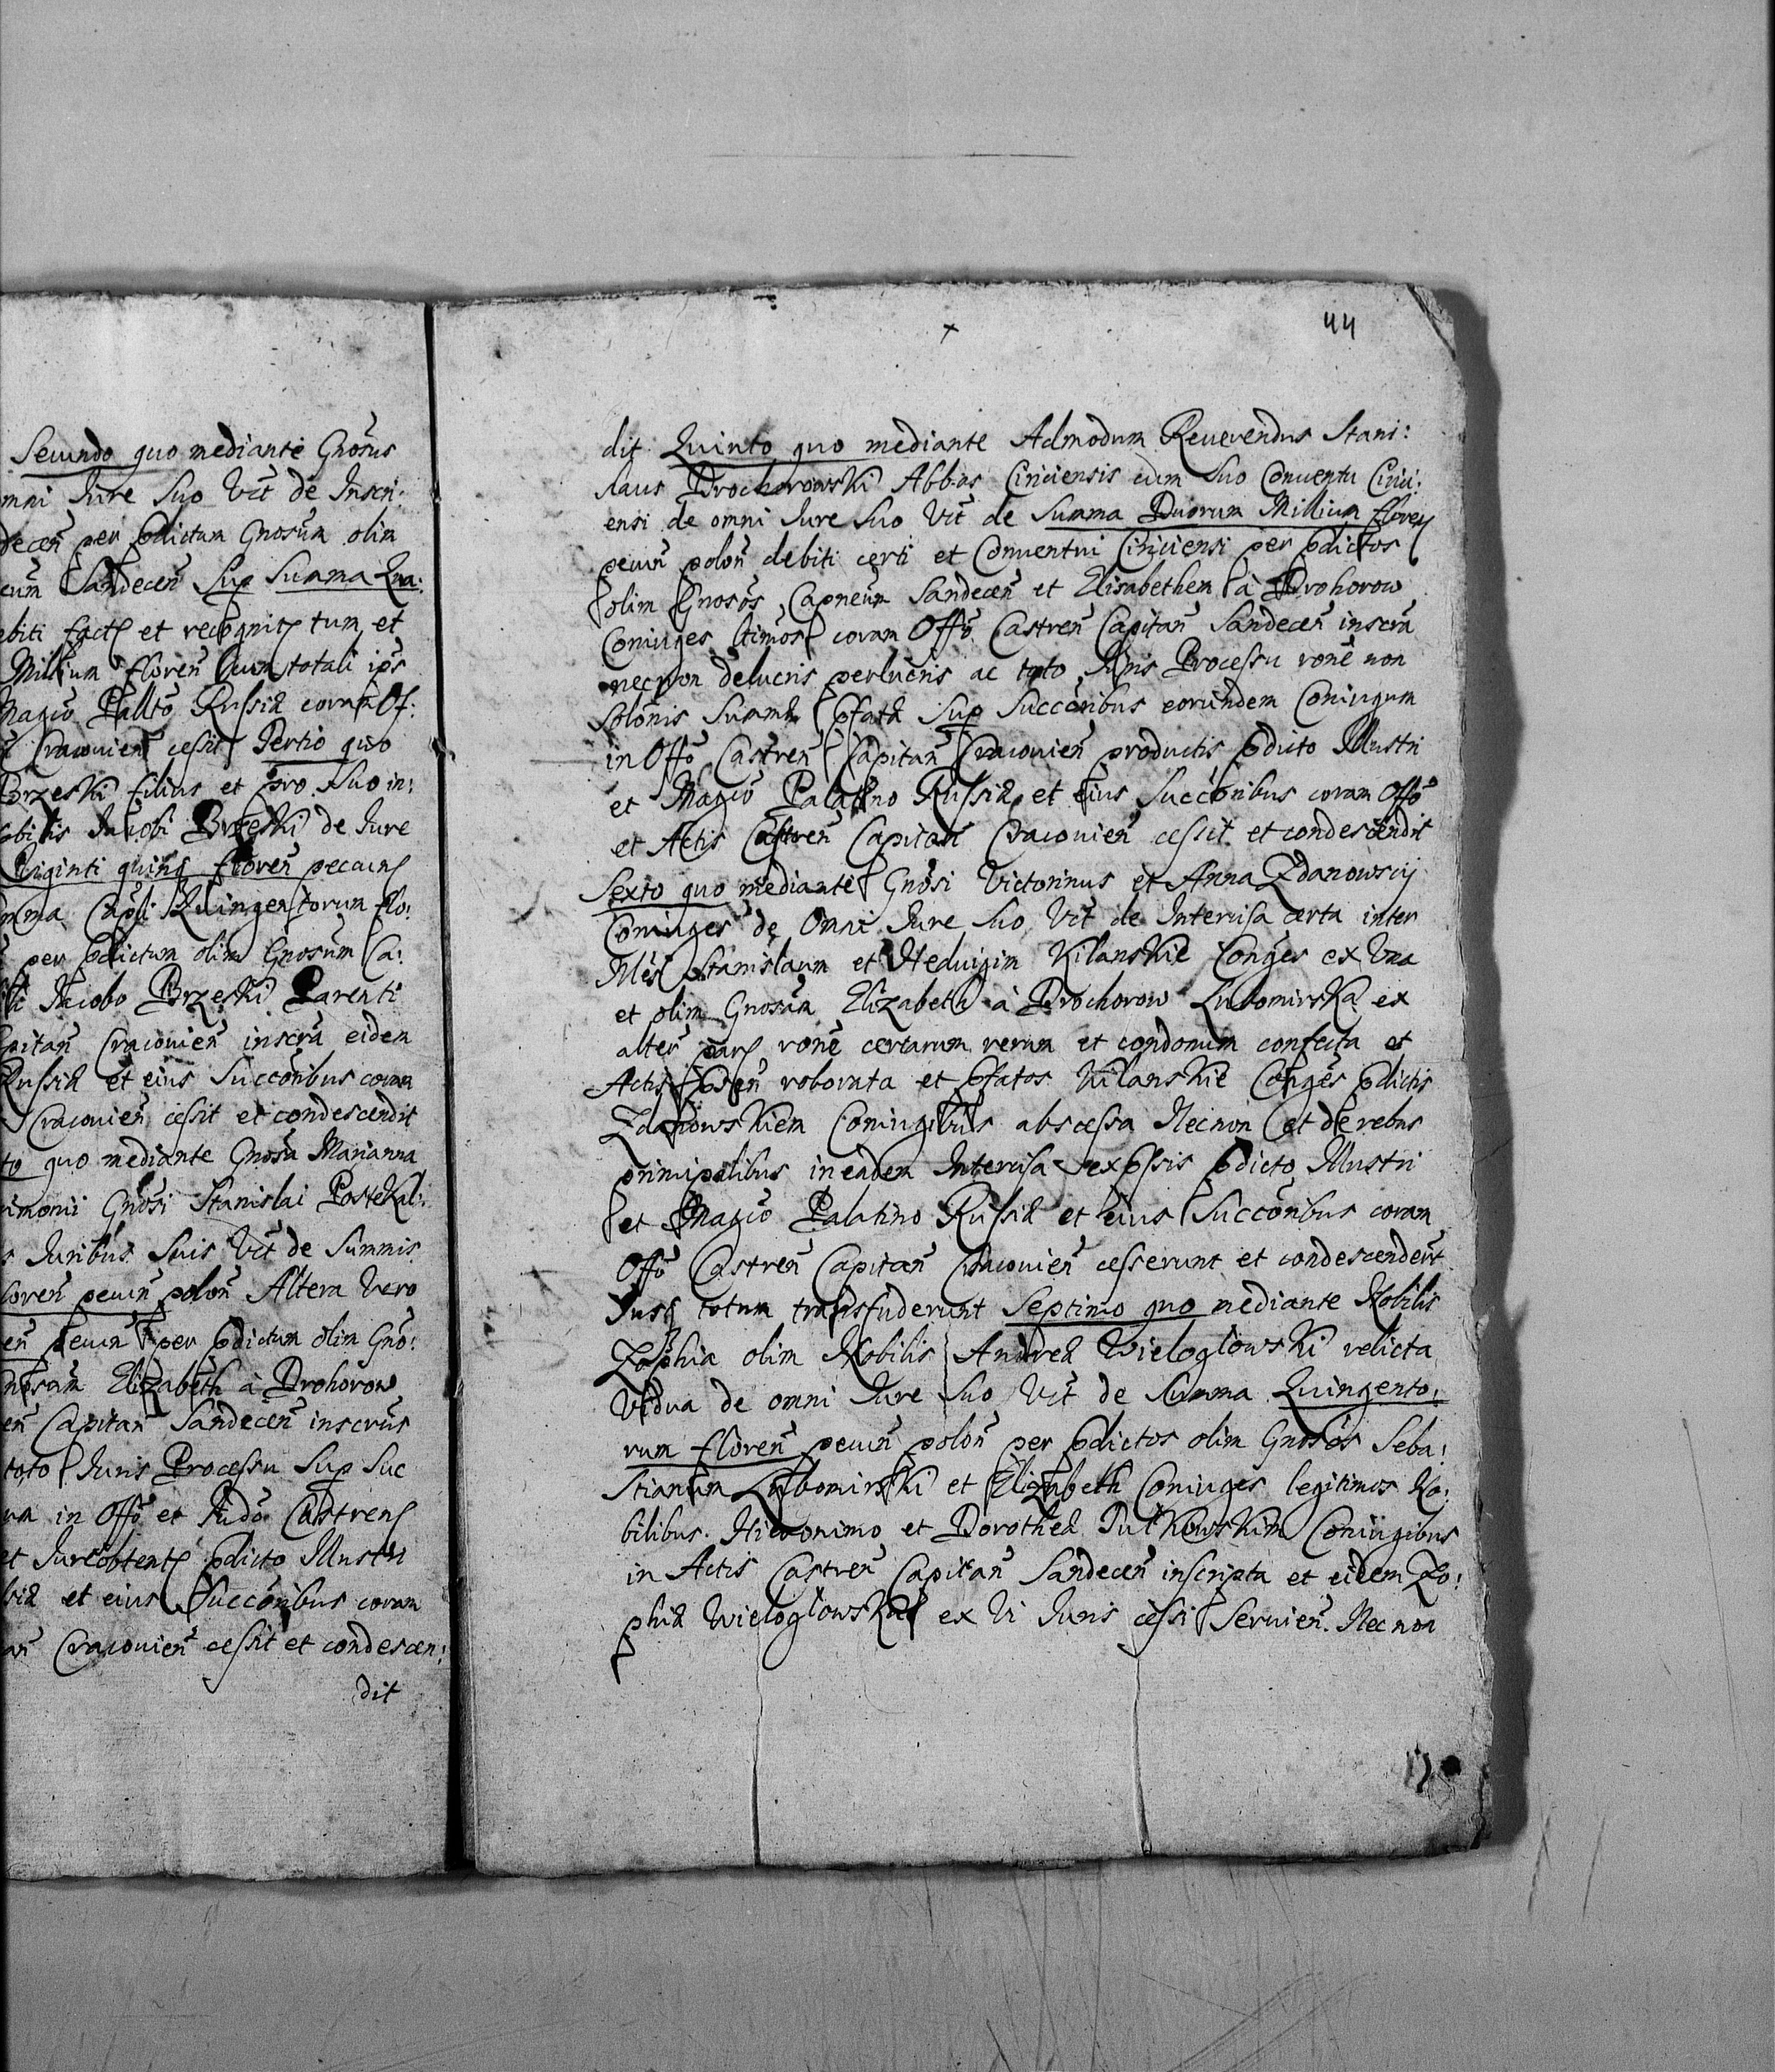 Secundo quo mediante Gnosus
mni Jure suo Vīt de Inscri:
decen̄ per p̄dictum Gnosum olim
eum Sandecen̄ Sup Summa Qua:
ebiti facti et recognit tum et
Millium floren̄ cum totali ips
Magco Pallto Russiæ coram Of:
Cracouien̄ cessit Tertio quo
Brzeski filius et pro suo in:
obilis Jacobi Brzeski de Jure
Viginti quinq floren̄ pecun
mma Capli Quingentorum flo:
per p̄dictum olim Gnosum Ca:
li Jacobo Brzeski Parenti
pitan̄ Cracouien̄ inscra eidem
Russiæ et eius Succoribus coram
Cracouien̄ cessit et condescendit
to quo mediante Gnosa Marianna
rimonii Gnosi Stanislai Postekal:
s Juribus suis Vīt de Summis
loren̄ pecun̄ polon̄ Altera Vero
en̄ pecun̄ per p̄dictum olim Gno:
nosam Elizabeth à Prohorow
en̄ Capitan̄ Sandecen̄ inscrus
toto Juris Processu Sup Suc
um in Offo et Judo Castren
et Jureobtent p̄dicto Illustri
siæ et eius Succoribus coram
an̄ Cracouien̄ cessit et condescen:
dit
44
dit Quinto quo mediante Admodum Reuerendus Stani:
slaus Drochorowski Abbas Ciriciensis cum suo Conuentu Cirici:
ensi de omni Jure suo Vīt de Summa Duorum Millium floren
pecun̄ polon̄ debiti certi et Conuentui Ciriciensi per p̄dictos
olim Gnosos Capneum Sandecen̄ et Elisabethem à Prohorow
Coniuges ltimos coram Offo Castren̄ Capitan̄ Sandecen̄ inscra
necnon delucris perlucris ac toto Juris Processu rone non
Solonis Summæ p̄fatæ Sup Succoribus eorundem Coniugum
in Offo Castren̄ Capitan̄ Cracouien̄ productis p̄dicto Illustri
et Magco Palatino Russiæ et eius Succoribus coram Offo
et Actis Castren̄ Capitan̄ Cracouien̄ cessit et condescendit
Sexto quo mediante Gnosi Victorinus et Anna Zdanowscij
Coniuges de Omni Jure suo Vīt de Intercisa certa inter
Stanislaum et Heduigim Kilanskie Conges ex Vna
et olim Gnosam Elizabeth à Prochorow Lubomirska ex
alter par rone certarum rerum et condonum confecta et
Actis roborata et p̄fatos Kilanskie Conges p̄dictis
Zdanowskiem Coniugibus abscessa Necnon et de rebus
principalibus in eadem Intercisa exp̄ssis p̄dicto Illustri
et Magco Palatino Russiæ et eius Succoribus coram
Offo Castren̄ Capitan̄ Cracouien̄ cesserunt et condescendert
Jusq totum transfuderunt Septimo quo mediante Nobilis
Zophia olim Nobilis Andreæ Wieloglowski relicta
Vidua de omni Jure suo Vīt de Summa Quingento:
rum floren̄ pecun̄ polon̄ per p̄dictos olim Gnosos Seba:
stianum Lubomirski et Elizabeth Coniuges legitimos No:
bilibus Hieronimo et Dorotheæ Putkowskim Coniugibus
in Actis Castren̄ Capitan̄ Sandecen̄ inscripta et eidem Zo:
phiæ Wieloglowska ex Vi Juris cessi Seruien̄. Necnon